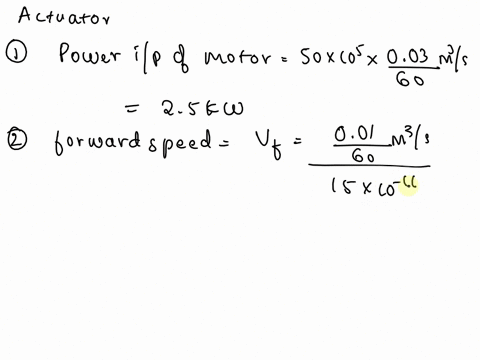 Actuator
① Power i/p of motor = 50 × 10⁵ × 0.03/60 m³/s
= 2.5 kW
② forward speed = V_f = (0.01/60 m³/s)/(15 × 10⁻⁴